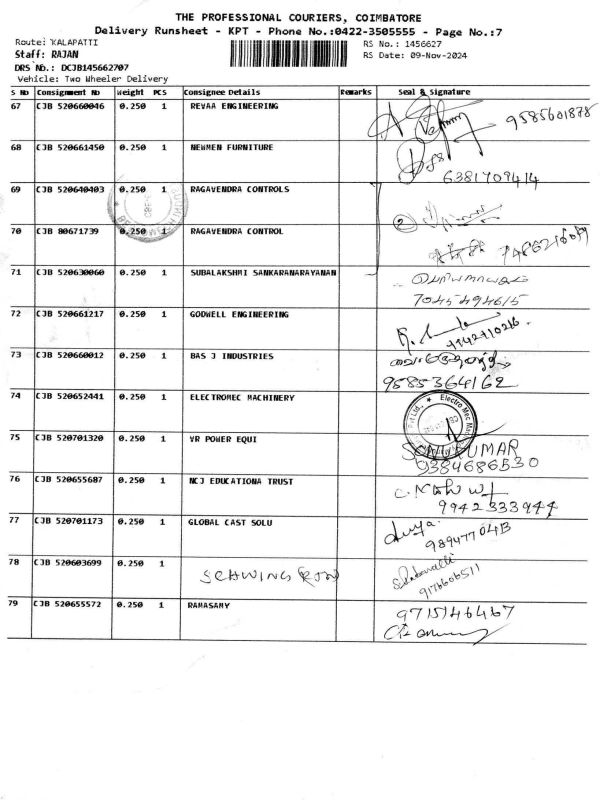 THE PROFESSIONAL COURIERS, COIMBATORE
Delivery Runsheet - KPT - Phone No.:0422-3505555 - Page No.:7
Route: KALAPATTI
RS No.: 1456627
Staff: RAJAN
RS Date: 09-Nov-2024
DRS No.: DCJB145662707
Vehicle: Two Wheeler Delivery
S No Consignment No Weight PCS Consignee Details Remarks Seal & Signature
67 CJB 520660046 0.250 1 REVAA ENGINEERING 9585601878
68 CJB 520661450 0.250 1 NEWMEN FURNITURE
6381709414
69 CJB 520640403 0.250 1 RAGAVENDRA CONTROLS
2
70 CJB 80671739 0.250 1 RAGAVENDRA CONTROL
71 CJB 520630060 0.250 1 SUBALAKSHMI SANKARANARAYANAN
7045494615
72 CJB 520661217 0.250 1 GODWELL ENGINEERING
73 CJB 520660012 0.250 1 BAS J INDUSTRIES
9585364162
74 CJB 520652441 0.250 1 ELECTROMEC MACHINERY
75 CJB 520701320 0.250 1 VR POWER EQUI
KUMAR
76 CJB 520655687 0.250 1 NCJ EDUCATIONA TRUST
9942333944
77 CJB 520701173 0.250 1 GLOBAL CAST SOLU
78 CJB 520603699 0.250 1 SCHWING
9176606511
79 CJB 520655572 0.250 1 RAMASAMY 9715146467